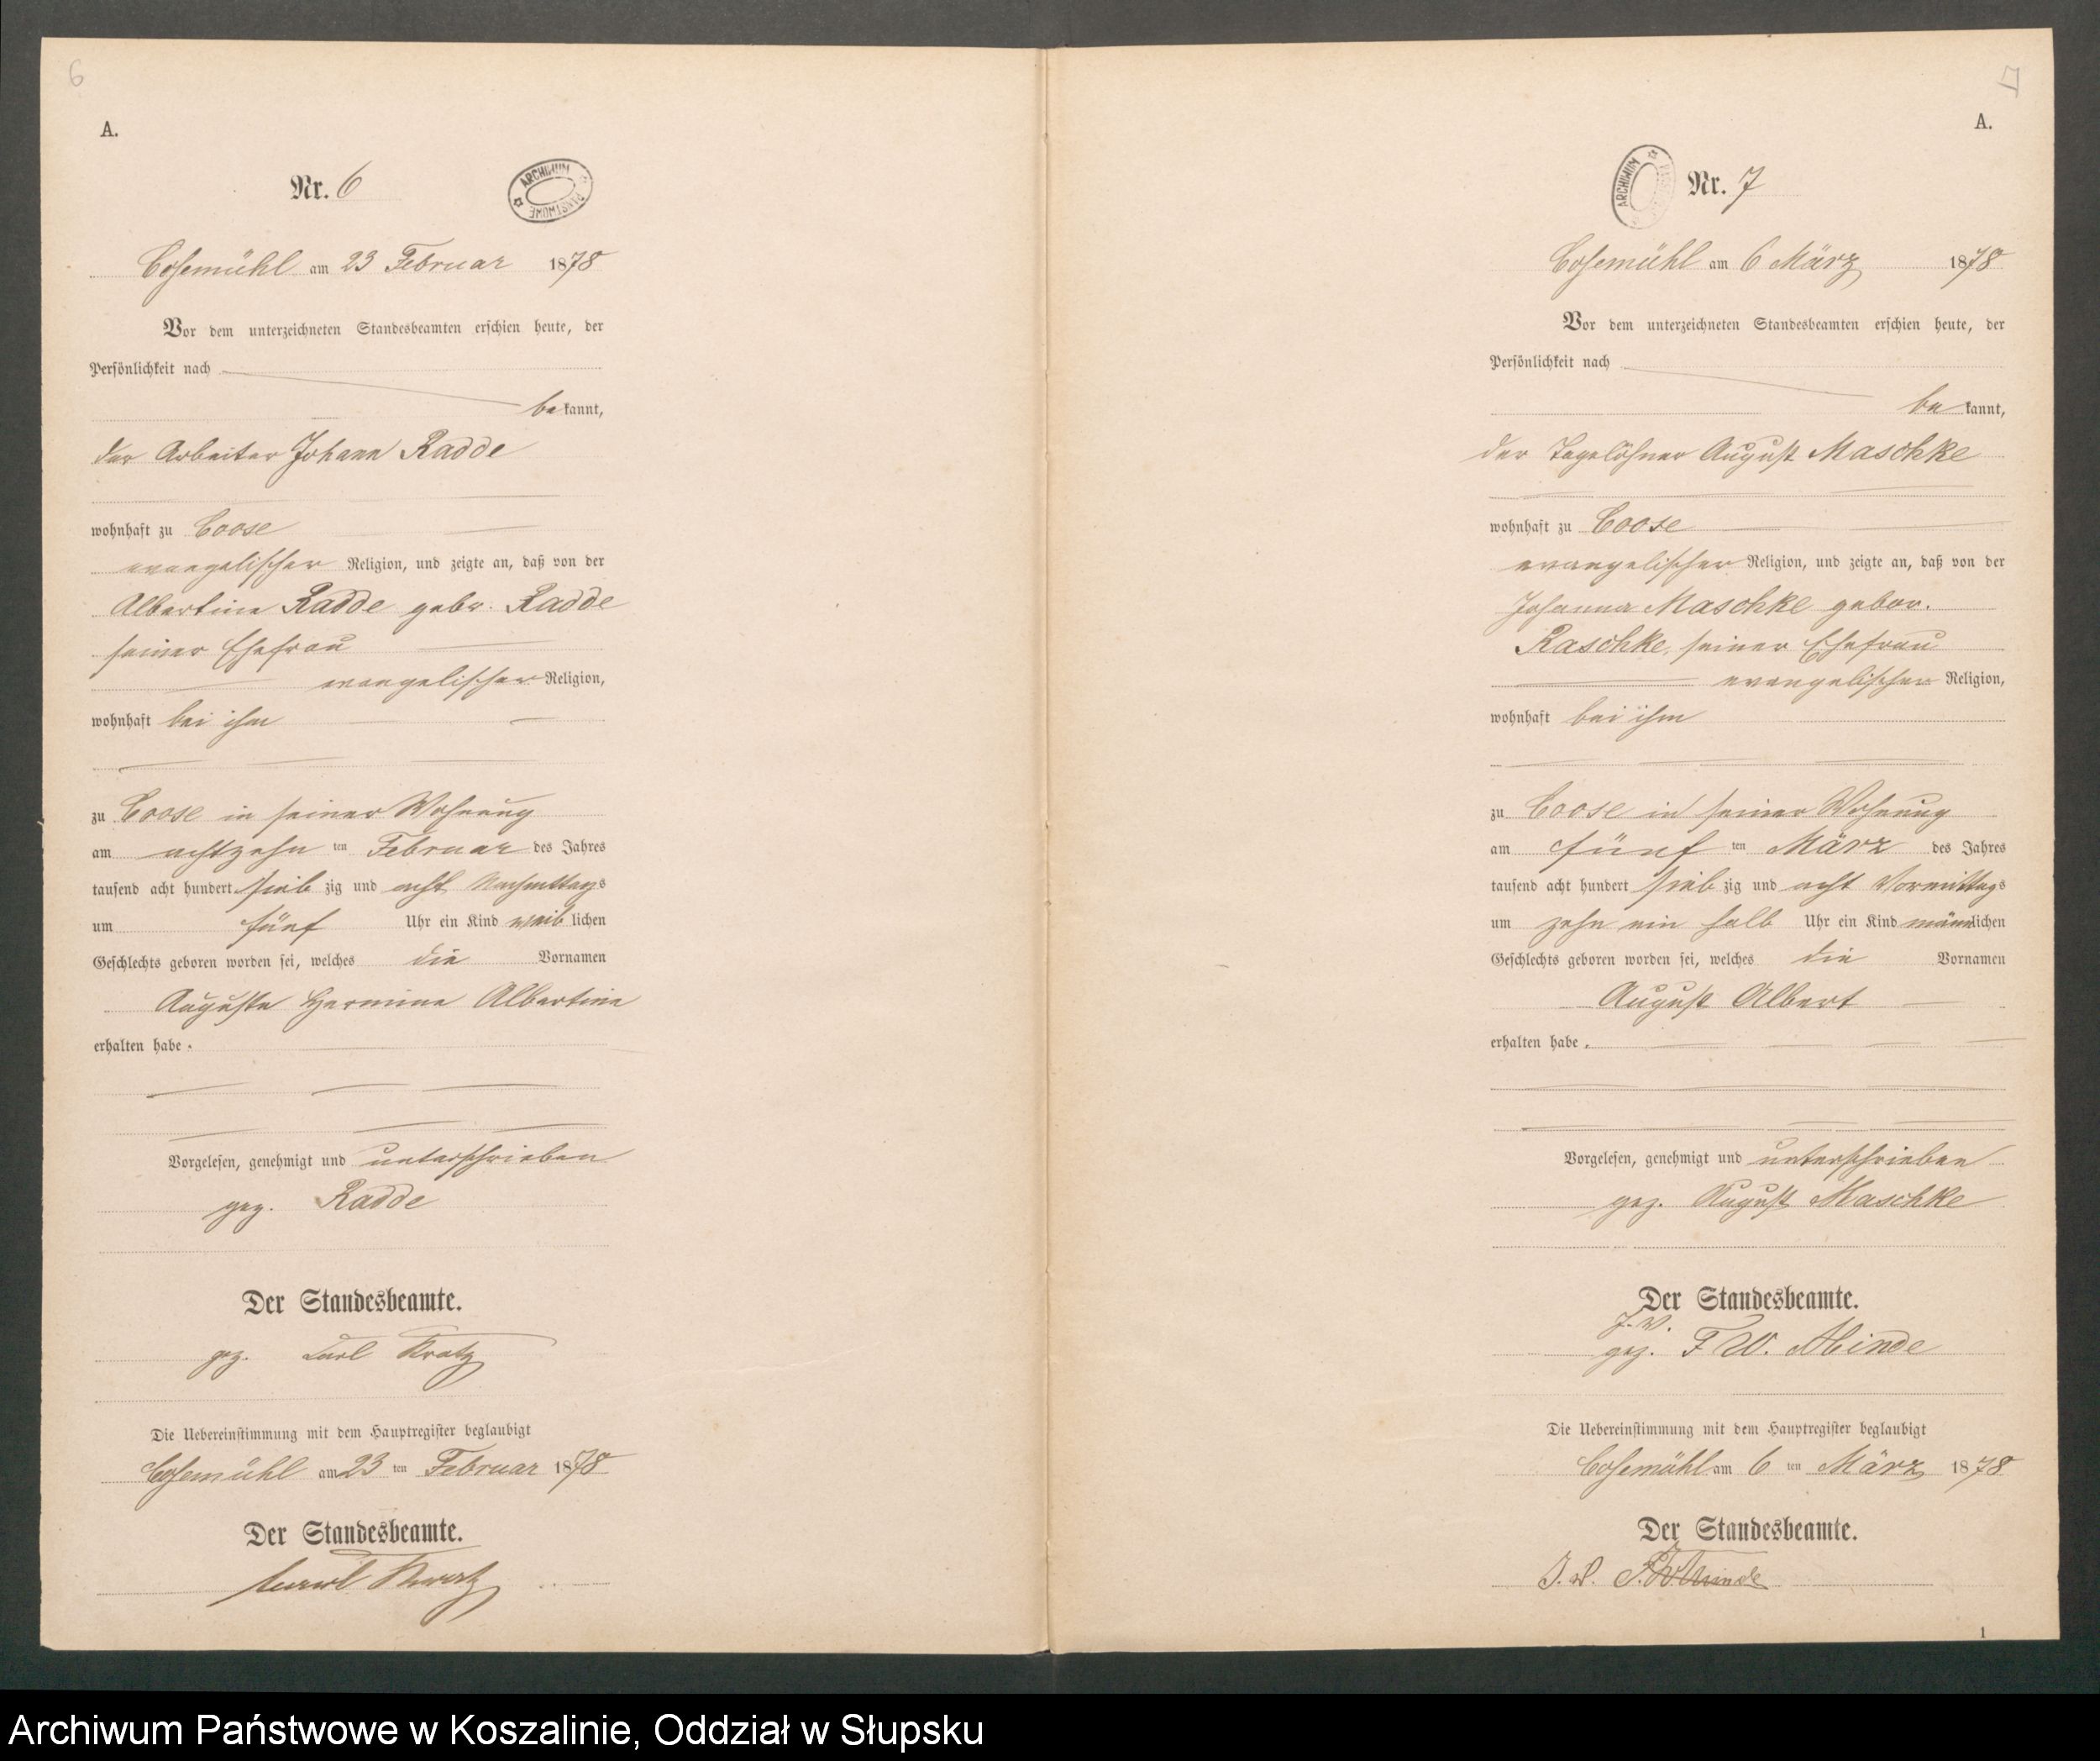 6
A.
Nr. 6
ARCHIWUM PAŃSTWOWE
Cosemühl am 23 Februar 1878
Vor dem unterzeichneten Standesbeamten erschien heute, der
Persönlichkeit nach
bekannt,
der Arbeiter Johann Radde
wohnhaft zu Coose
evangelischer Religion, und zeigte an, daß von der
Albertine Radde gebr. Radde
seiner Ehefrau
evangelischer Religion,
wohnhaft bei ihm
zu Coose in seiner Wohnung
am achtzehn ten Februar des Jahres
tausend acht hundert sieb zig und acht Nachmittags
um fünf Uhr ein Kind weiblichen
Geschlechts geboren worden sei, welches die Vornamen
Auguste Hermine Albertine
erhalten habe.
Vorgelesen, genehmigt und unterschrieben
gez. Radde
Der Standesbeamte.
gez. Carl Kratz
Die Uebereinstimmung mit dem Hauptregister beglaubigt
Cosemühl am 23 ten Februar 1878
Der Standesbeamte.
Carl Kratz
7
A.
ARCHIWUM
Nr. 7
Cosemühl am 6 März 1878
Vor dem unterzeichneten Standesbeamten erschien heute, der
Persönlichkeit nach
bekannt,
der Tagelöhner August Maschke
wohnhaft zu Coose
evangelischer Religion, und zeigte an, daß von der
Johanna Maschke gebor.
Raschke, seiner Ehefrau
evangelischer Religion,
wohnhaft bei ihm
zu Coose in seiner Wohnung
am fünf ten März des Jahres
tausend acht hundert sieb zig und acht Vormittags
um zehn ein halb Uhr ein Kind männlichen
Geschlechts geboren worden sei, welches die Vornamen
August Albert
erhalten habe.
Vorgelesen, genehmigt und unterschrieben
gez. August Maschke
Der Standesbeamte.
J. V.
gez. F W. Minde
Die Uebereinstimmung mit dem Hauptregister beglaubigt
Cosemühl am 6 ten März 1878
Der Standesbeamte.
J. V. F. W. Minde
1
Archiwum Państwowe w Koszalinie, Oddział w Słupsku